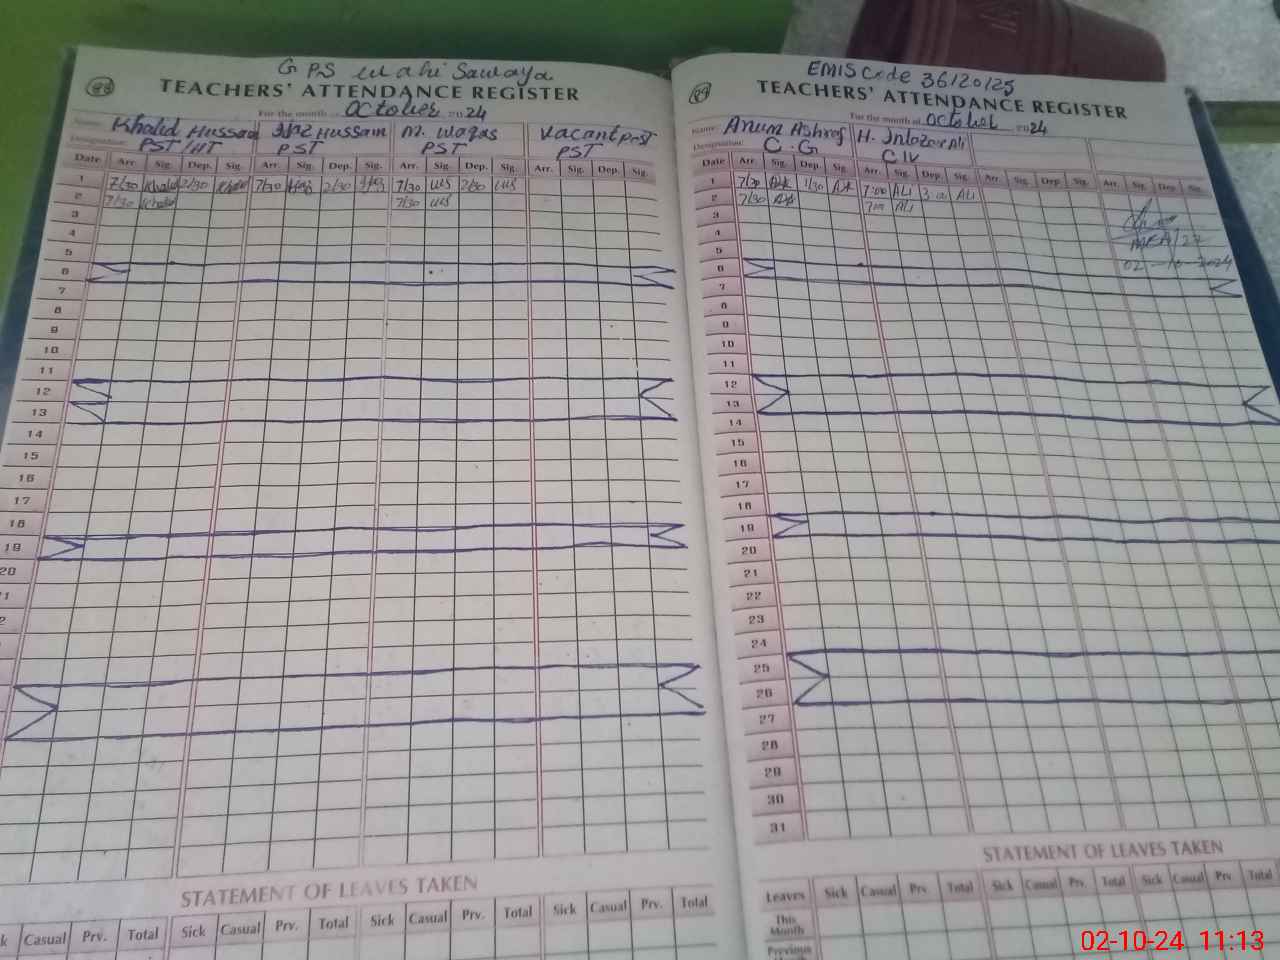 88
GPS Wahi Sawaya
TEACHERS' ATTENDANCE REGISTER
For the month of October 2024
Name: Khalid Hussain Hussain M. Waqas Vacant Post
Designation: PST/HT PST PST PST
Date Arr. Sig. Dep. Sig. Arr. Sig. Dep. Sig. Arr. Sig. Dep. Sig. Arr. Sig. Dep. Sig.
1 7/30 Khalid 2/30 Khalid 7/30 2/30 7/30 2/30
2 7/30 Khalid 7/30
3
4
5
6
7
8
9
10
11
12
13
14
15
16
17
18
19
20
STATEMENT OF LEAVES TAKEN
Casual Prv. Total Sick Casual Prv. Total Sick Casual Prv. Total Sick Casual Prv. Total
89
EMIS Code 36120125
TEACHERS' ATTENDANCE REGISTER
For the month of October 2024
Name: Anum Ashraf H. Intazar Ali
Designation: C.G C IV
Date Arr. Sig. Dep. Sig. Arr. Sig. Dep. Sig. Arr. Sig. Dep. Sig. Arr. Sig. Dep. Sig.
1 7/30 1/30 7:00 ALi 3:00 ALi
2 7/30 7:00 ALi
3
4
MEA/27
5
02-10-2024
6
7
8
9
10
11
12
13
14
15
16
17
18
19
20
21
22
23
24
25
26
27
28
29
30
31
STATEMENT OF LEAVES TAKEN
Leaves Sick Casual Prv. Total Sick Casual Prv. Total Sick Casual Prv. Total
This Month
Previous
02-10-24 11:13